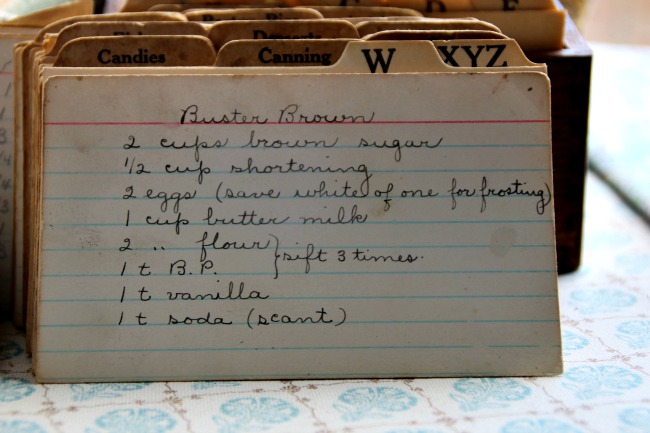 D E
Desserts
Candies
Canning
W
XYZ
Buster Brown
2 cups brown sugar
1/2 cup shortening
2 eggs (save white of one for frosting)
1 cup butter milk
2 " flour } sift 3 times.
1 t B.P.
1 t vanilla
1 t soda (scant)